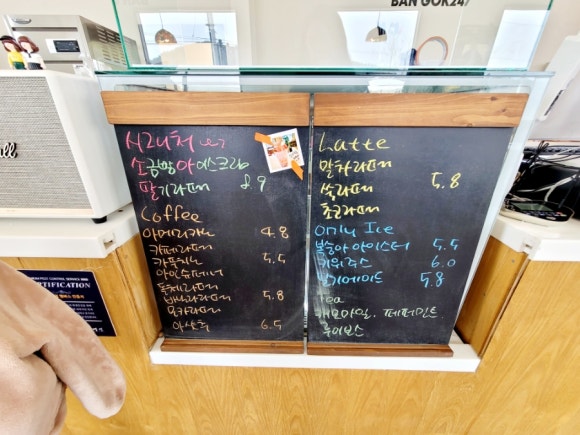 BAN GOK247
시그니처
소금빵 아이스크림
딸기라떼 8.9
Coffee
아메리카노 4.8
카페라떼
카푸치노 5.5
아인슈페너
돌체라떼
바닐라라떼 5.8
모카라떼
아샷추 6.5
Latte
말차라떼
쑥라떼 5.8
초코라떼
Only Ice
복숭아 아이스티 5.5
키위주스 6.0
에이드 5.8
Tea
캐모마일, 페퍼민트
루이보스
CERTIFICATION